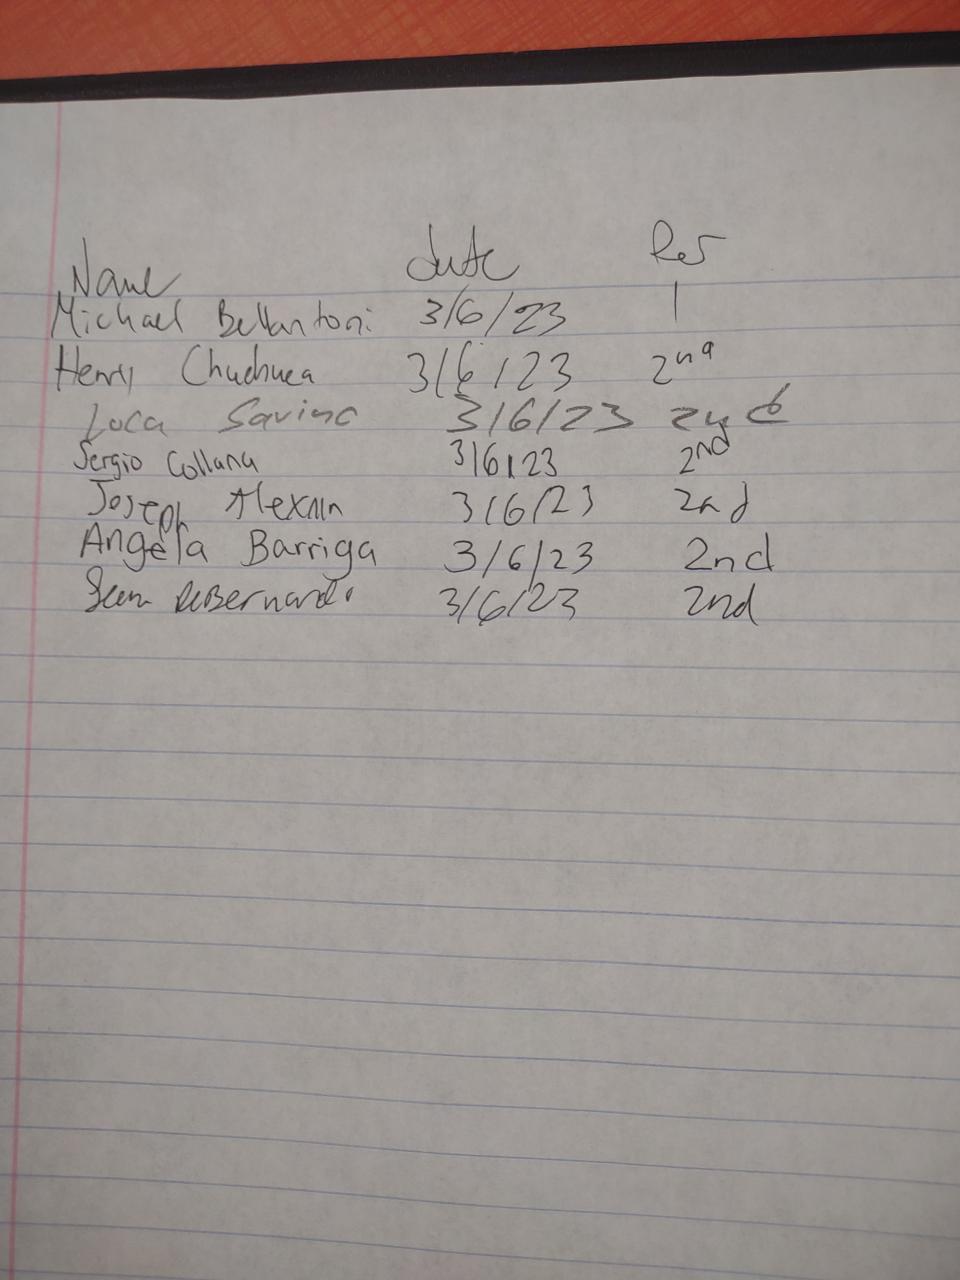 Name date
Michael Bellantoni 3/6/23 1
Henry 3/6/23 2nd
Luca Savino 3/6/23 2nd
Sergio Collana 3/6/23 2nd
Joseph 3/6/23 2nd
Angela Barriga 3/6/23 2nd
DeBernardi 3/6/23 2nd